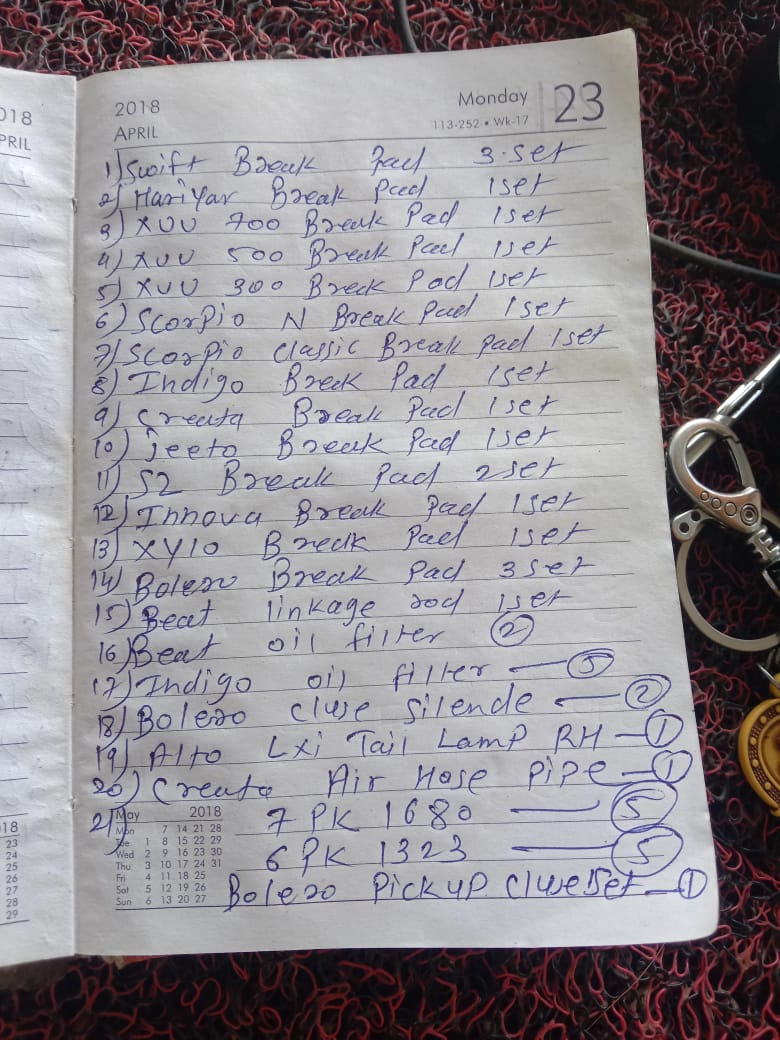 2018
APRIL
Monday
113-252 • Wk-17
23
1) Swift Break Pad 3.set
2) HariYar Break Pad 1set
3) XUV 700 Break Pad 1set
4) XUV 500 Break Pad 1set
5) XUV 300 Break Pad 1set
6) Scorpio N Break Pad 1set
7) Scorpio Classic Break Pad 1set
8) Indigo Break Pad 1set
9) Creata Break Pad 1set
10) Jeeto Break Pad 1set
11) S2 Break Pad 2set
12) Innova Break Pad 1set
13) XYLO Break Pad 1set
14) Bolero Break Pad 3set
15) Beat linkage rod 1set
16) Beat oil filter 2
17) Indigo oil filter — 5
18) Bolero Cluse Silende — 2
19) Alto Lxi Tail Lamp RH — 1
20) Creata Air Hose PiPe — 1
21) 7 PK 1680 — 5
6 PK 1323 — 5
Bolero Pickup Cluse set — 1
May 2018
Mon 7 14 21 28
Tue 1 8 15 22 29
Wed 2 9 16 23 30
Thu 3 10 17 24 31
Fri 4 11 18 25
Sat 5 12 19 26
Sun 6 13 20 27
018
PRIL
18
23
24
25
26
27
28
29